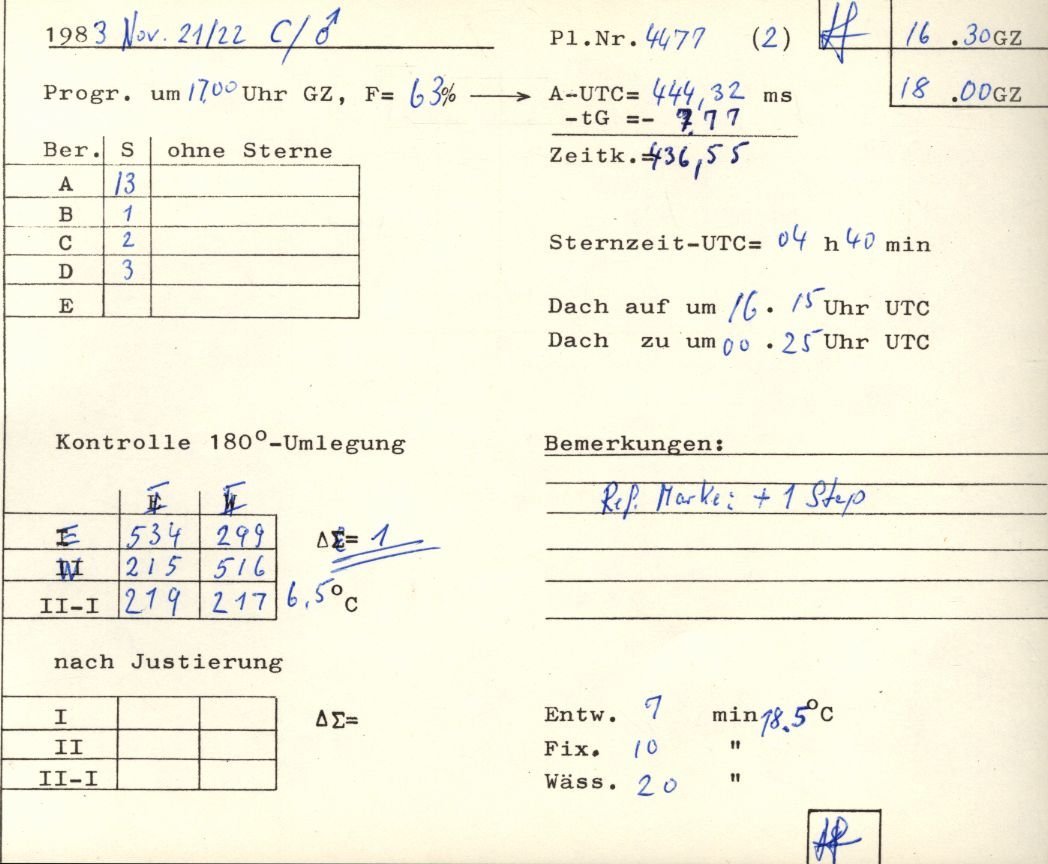 1983 Nov. 21/22 C/♂ Pl.Nr. 4477 (2) 16 .30GZ
Progr. um 17.00 Uhr GZ, F= 63% → A-UTC= 444,32 ms 18 .00GZ
-tG =- 7.77
Ber. S ohne Sterne Zeitk.=436,55
A 13
B 1
C 2 Sternzeit-UTC= 04 h 40 min
D 3
E Dach auf um 16. 15 Uhr UTC
Dach zu um 00 .25 Uhr UTC
Kontrolle 180°-Umlegung Bemerkungen:
I II Ref. Marke: + 1 Step
E 534 299 ΔΣ= 1
W 215 516
II-I 219 217 6.5°C
nach Justierung
I ΔΣ= Entw. 7 min 18.5°C
II Fix. 10 "
II-I Wäss. 20 "